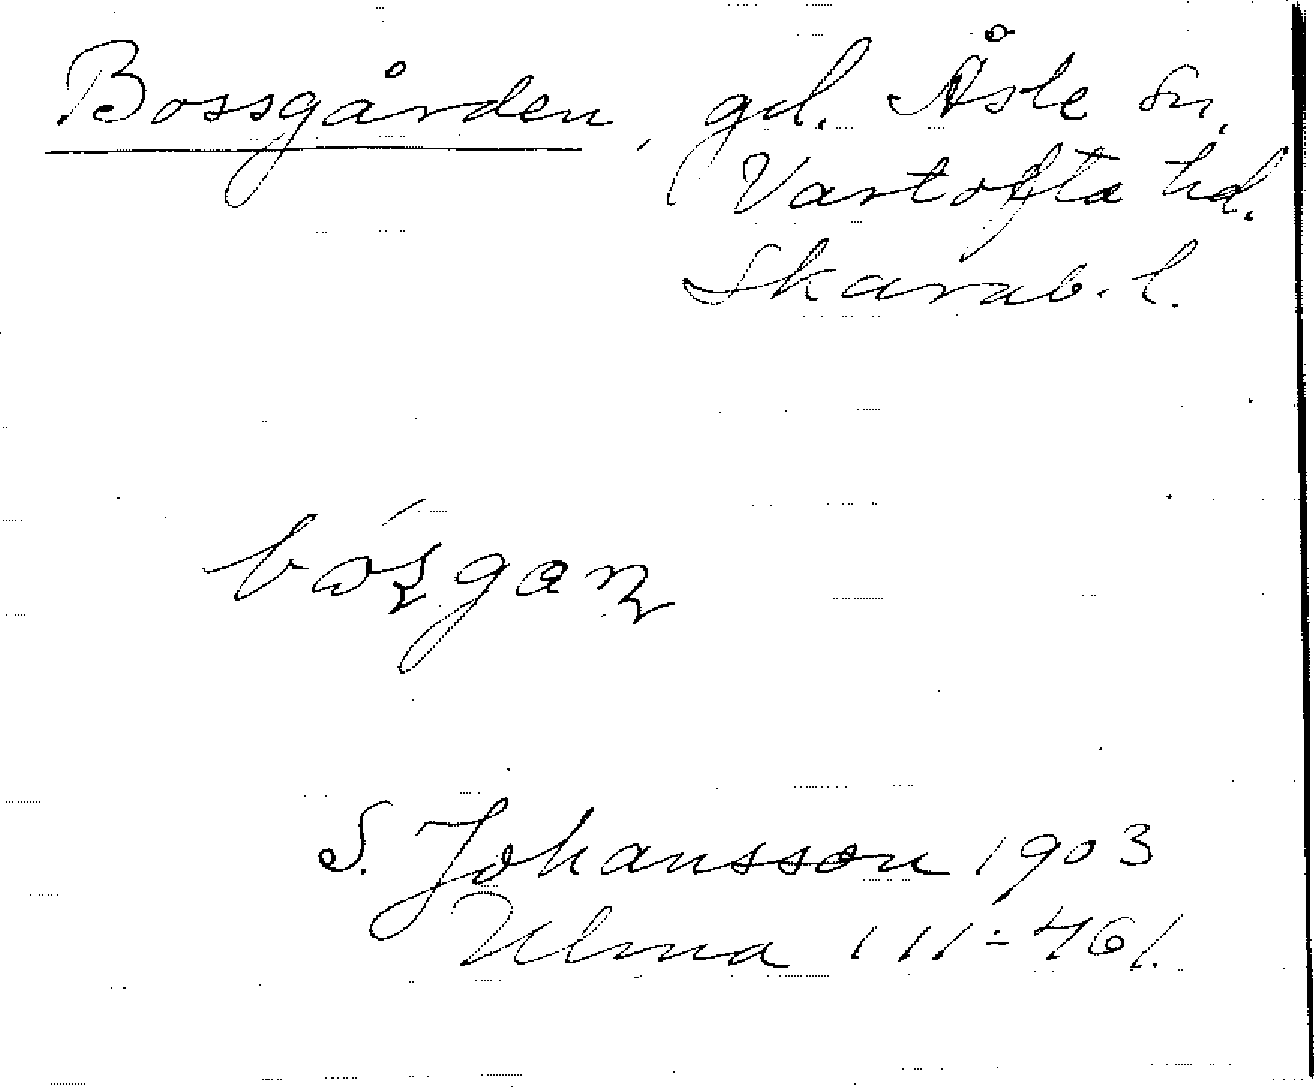 Bossgården, gd. Åsle sn,
Vartofta hd.
Skarab. l.
S. Johansson 1903
Ulma 111:461.